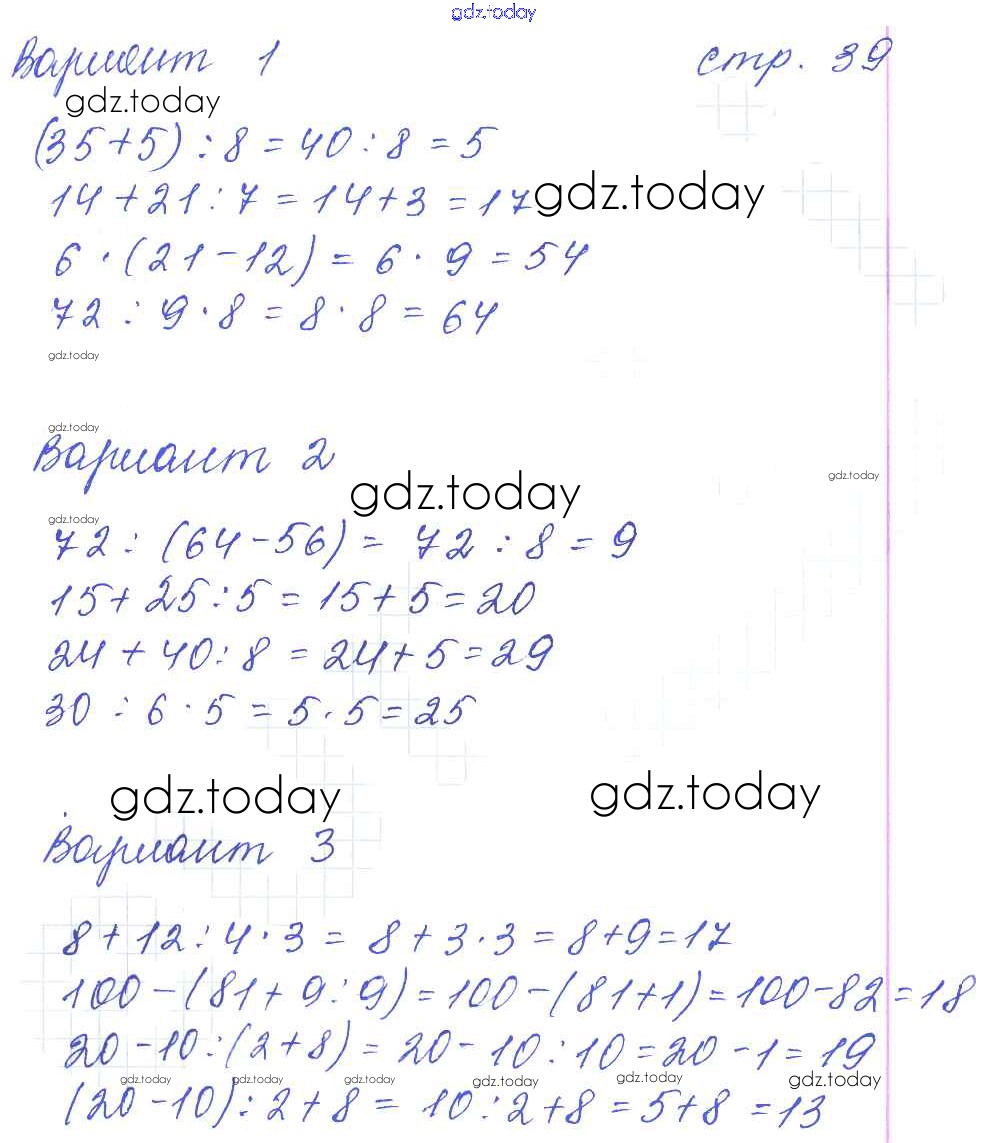 gdz.today
Вариант 1 стр. 39
gdz.today
(35+5) : 8 = 40 : 8 = 5
14 + 21 : 7 = 14 + 3 = 17 gdz.today
6 · (21 - 12) = 6 · 9 = 54
72 : 9 · 8 = 8 · 8 = 64
gdz.today
gdz.today
Вариант 2
gdz.today
gdz.today
gdz.today
72 : (64 - 56) = 72 : 8 = 9
15 + 25 : 5 = 15 + 5 = 20
24 + 40 : 8 = 24 + 5 = 29
30 : 6 · 5 = 5 · 5 = 25
gdz.today gdz.today
Вариант 3
8 + 12 : 4 · 3 = 8 + 3 · 3 = 8 + 9 = 17
100 - (81 + 9 : 9) = 100 - (81 + 1) = 100 - 82 = 18
20 - 10 : (2 + 8) = 20 - 10 : 10 = 20 - 1 = 19
gdz.today gdz.today gdz.today gdz.today gdz.today gdz.today
(20 - 10) : 2 + 8 = 10 : 2 + 8 = 5 + 8 = 13